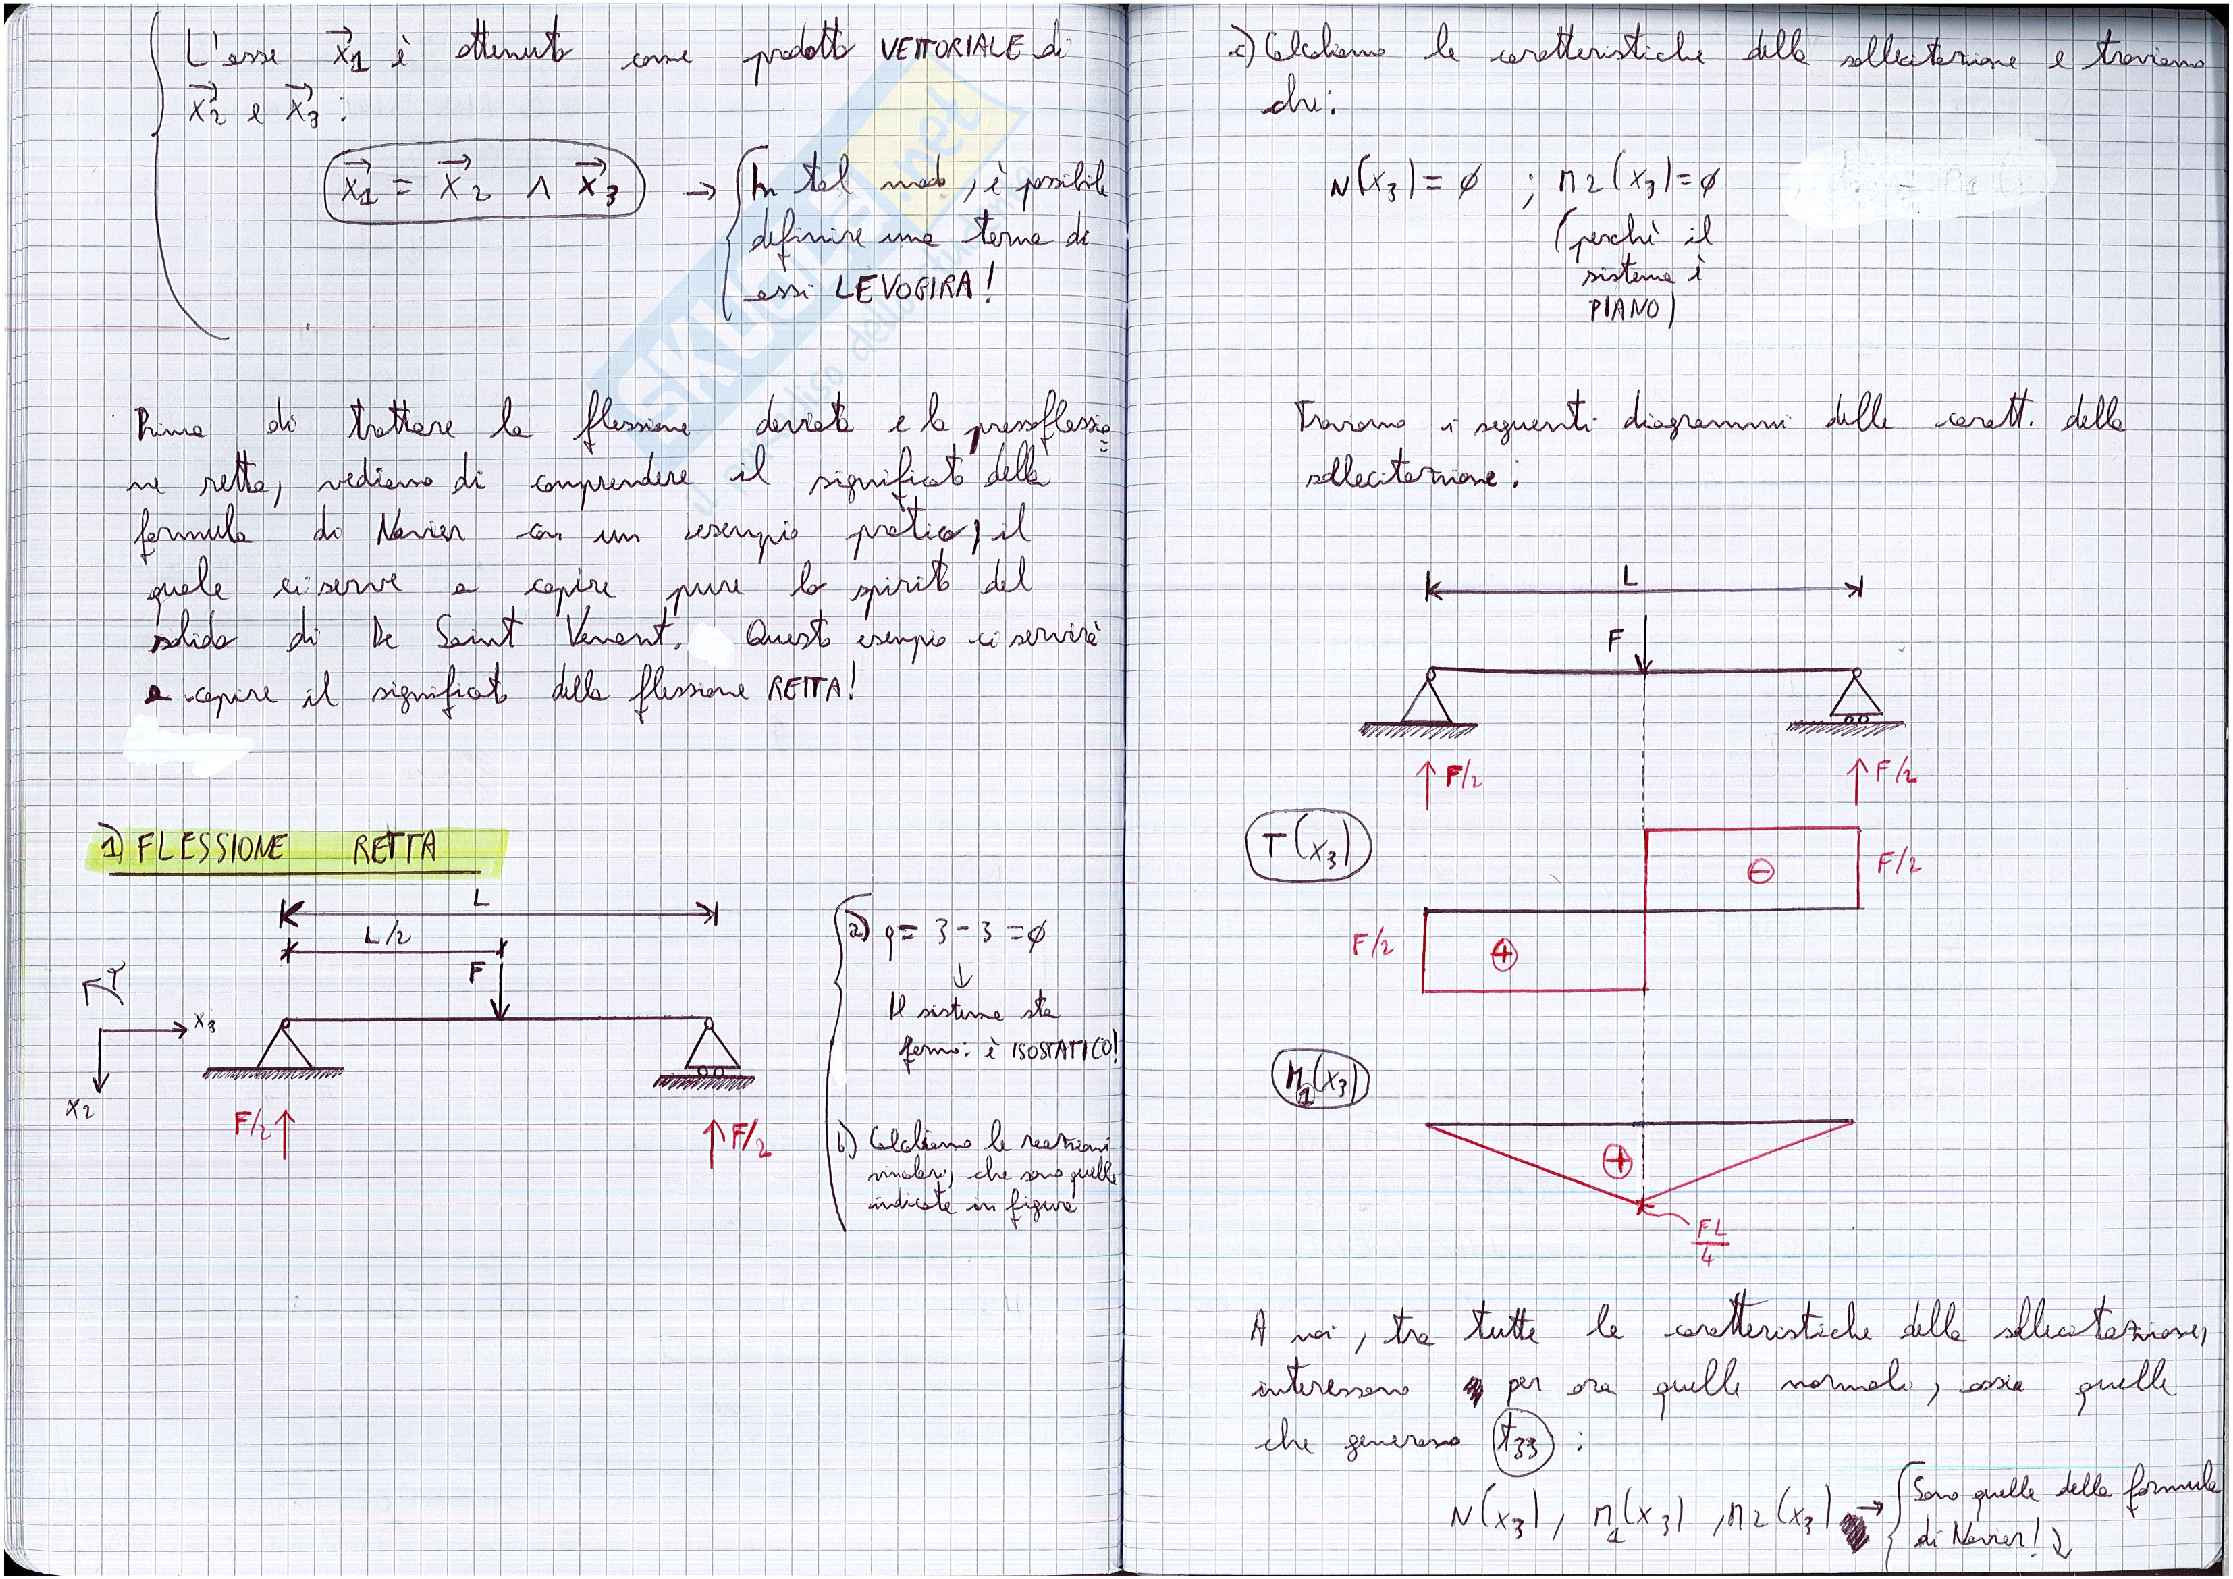 L'asse x⃗1 è ottenuto come prodotto VETTORIALE di
x⃗2 e x⃗3 :
x⃗1 = x⃗2 ∧ x⃗3 → In tal modo, è possibile
definire una terna di
assi LEVOGIRA!
Prima di trattare la flessione deviata e la pressoflessio=
ne retta, vediamo di comprendere il significato della
formula di Navier con un esempio pratico, il
quale ci serve a capire pure lo spirito del
solido di De Saint Venant. Questo esempio ci servirà
a capire il significato della flessione RETTA!
1) FLESSIONE RETTA
L
L/2
F
x3
x2
F/2
F/2
a) g = 3 - 3 = ø
↓
Il sistema sta
fermo: è ISOSTATICO!
b) Calcoliamo le reazioni
vincolari, che sono quelle
indicate in figura
c) Calcoliamo le caratteristiche della sollecitazione e troviamo
che:
N(x3) = ø ; M2(x3) = ø
(perchè il
sistema è
PIANO)
Trovano i seguenti diagrammi delle caratt. della
sollecitazione:
L
F
F/2
F/2
T(x3)
⊖
F/2
F/2
⊕
M1(x3)
⊕
FL/4
A noi, tra tutte le caratteristiche della sollecitazione,
interessano per ora quelle normali, ossia quelle
che generano t33 :
N(x3), M1(x3), M2(x3) → Sono quelle della formula
di Navier!
SKUOLA.net